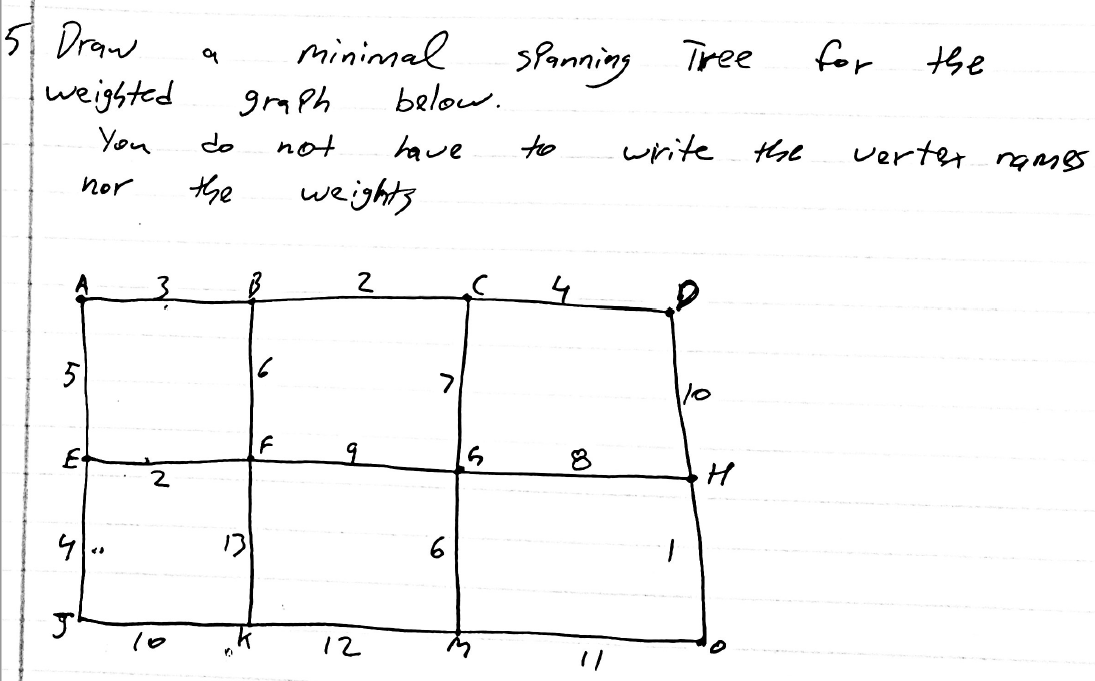 5 Draw a minimal spanning Tree for the
weighted graph below.
You do not have to write the vertex names
nor the weights
A 3 B 2 C 4 D
5 6 7 10
E 2 F 9 G 8 H
4 13 6 1
J 10 K 12 M 11 O